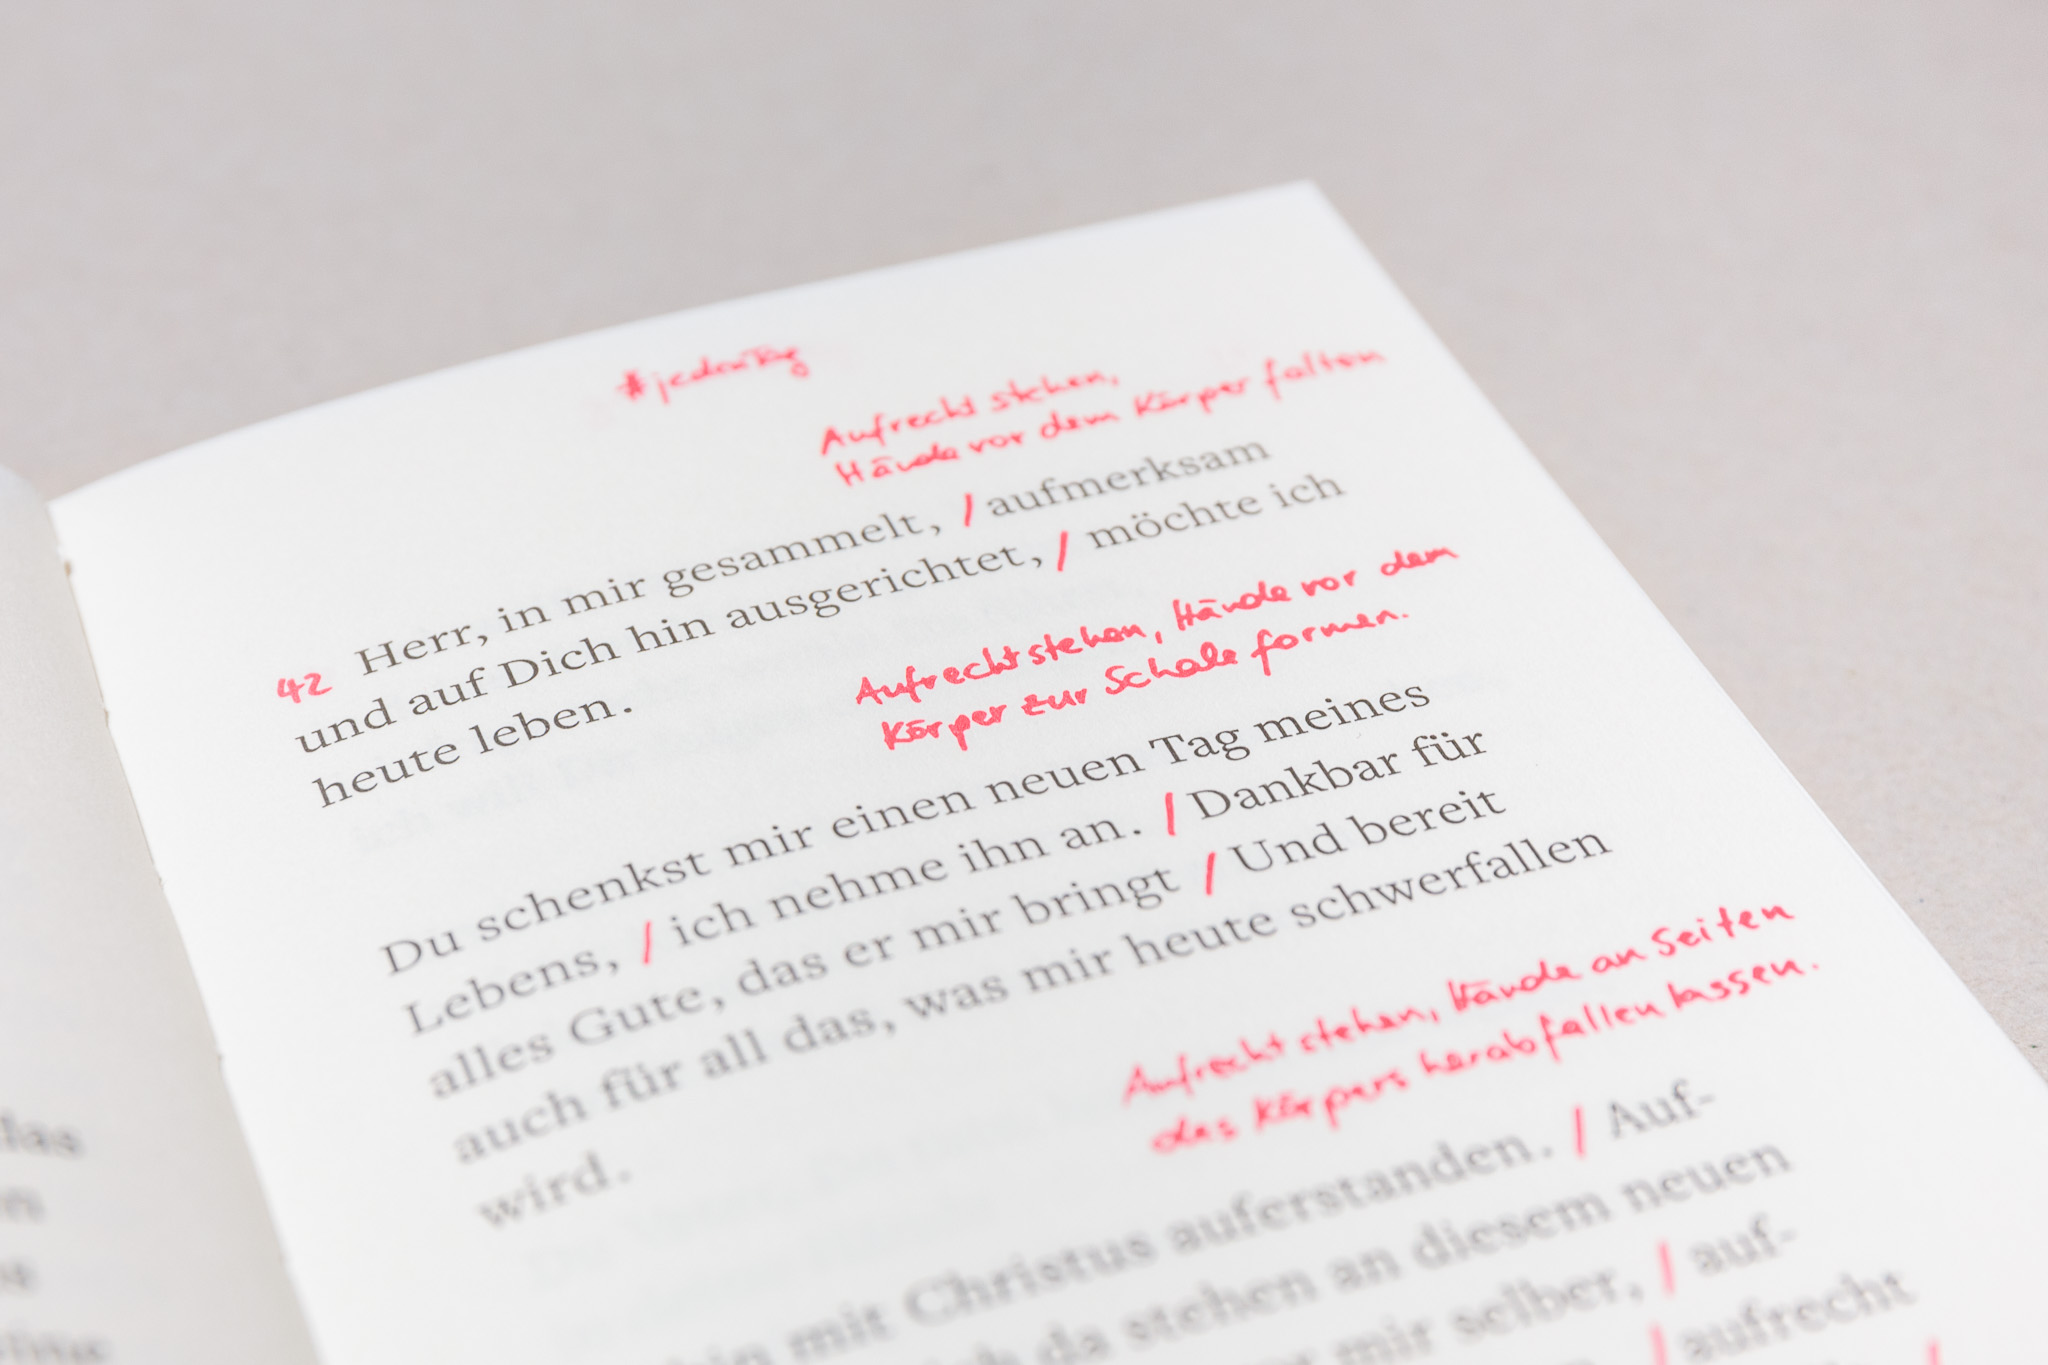 #jedenTag
Aufrecht stehen,
Hände vor dem Körper falten
42 Herr, in mir gesammelt, / aufmerksam
und auf Dich hin ausgerichtet, / möchte ich
heute leben.
Aufrecht stehen, Hände vor dem
Körper zur Schale formen.
Du schenkst mir einen neuen Tag meines
Lebens, / ich nehme ihn an. / Dankbar für
alles Gute, das er mir bringt / Und bereit
auch für all das, was mir heute schwerfallen
wird.
Aufrecht stehen, Hände an Seiten
des Körpers herabfallen lassen.
mit Christus auferstanden. / Auf-
da stehen an diesem neuen
mir selber, / auf-
/ aufrecht